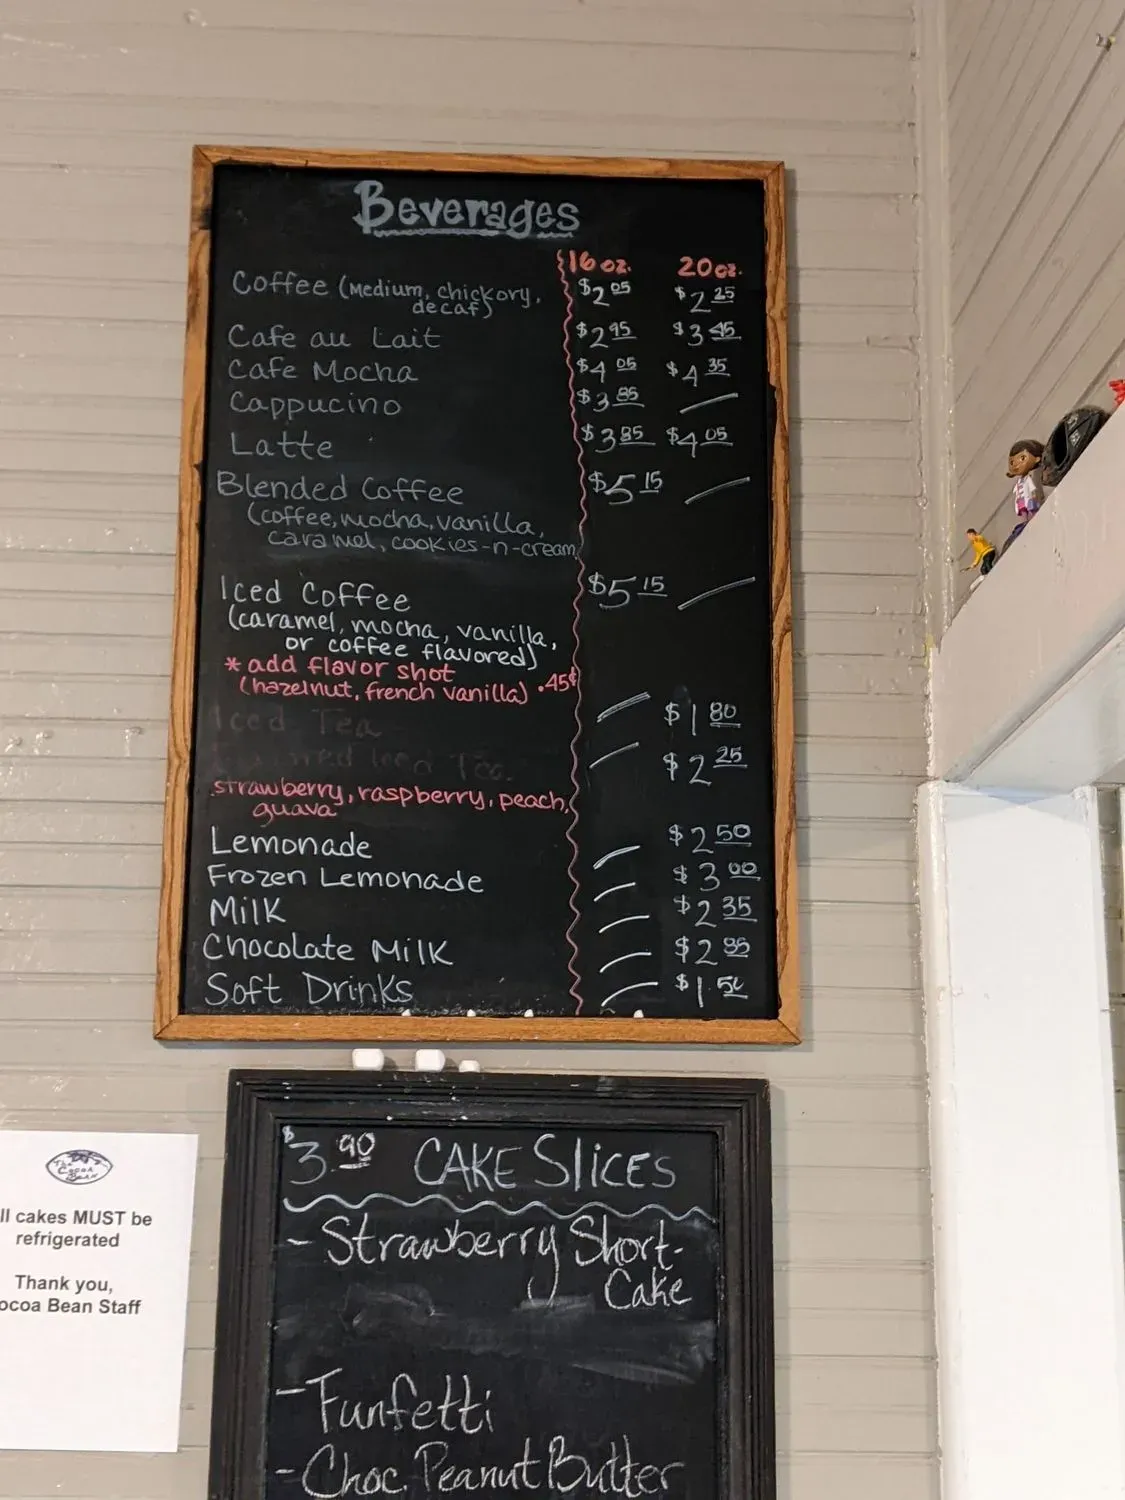 Beverages
16 oz. 20 oz.
Coffee (Medium, chickory, $2.05 $2.25
decaf)
Cafe au Lait $2.95 $3.45
Cafe Mocha $4.05 $4.35
Cappucino $3.85
Latte $3.85 $4.05
Blended Coffee $5.15
(coffee, mocha, vanilla,
caramel, cookies-n-cream
Iced Coffee $5.15
(caramel, mocha, vanilla,
or coffee flavored)
* add flavor shot
(hazelnut, french vanilla) .45¢
Iced Tea $1.80
Iced Tea $2.25
strawberry, raspberry, peach,
guava
Lemonade $2.50
Frozen Lemonade $3.00
Milk $2.35
Chocolate Milk $2.95
Soft Drinks $1.50
$3.90 CAKE SLICES
- Strawberry Short-
Cake
- Funfetti
- Choc. Peanut Butter
The
Cocoa
Bean
ll cakes MUST be
refrigerated
Thank you,
ocoa Bean Staff